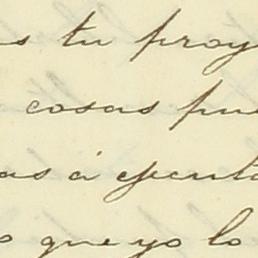 s tu proy
cosas pu
as á ejecuta
o que yo lo